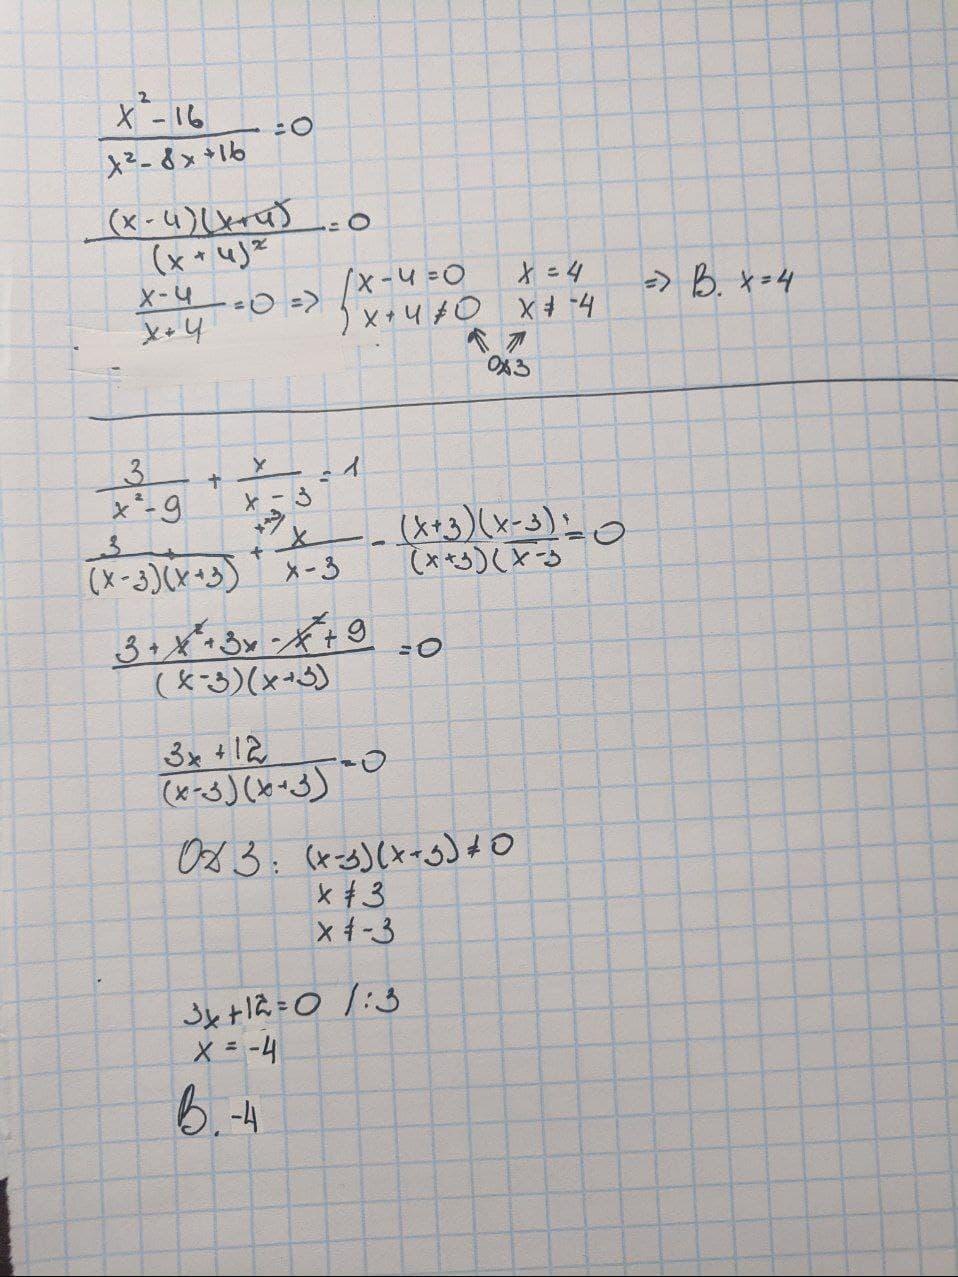 x² - 16 / x² - 8x + 16 = 0
(x - 4)(x + 4) / (x + 4)² = 0
x - 4 / x + 4 = 0 => { x - 4 = 0 x = 4 => В. x = 4
x + 4 ≠ 0 x ≠ -4
ОДЗ
3 / x² - 9 + x / x - 3 = 1
3 / (x - 3)(x + 3) + x / x - 3 - (x + 3)(x - 3) / (x + 3)(x - 3 = 0
3 + x² + 3x - x² + 9 / (x - 3)(x + 3) = 0
3x + 12 / (x - 3)(x + 3) = 0
ОДЗ: (x - 3)(x + 3) ≠ 0
x ≠ 3
x ≠ -3
3x + 12 = 0 /:3
x = -4
В. -4